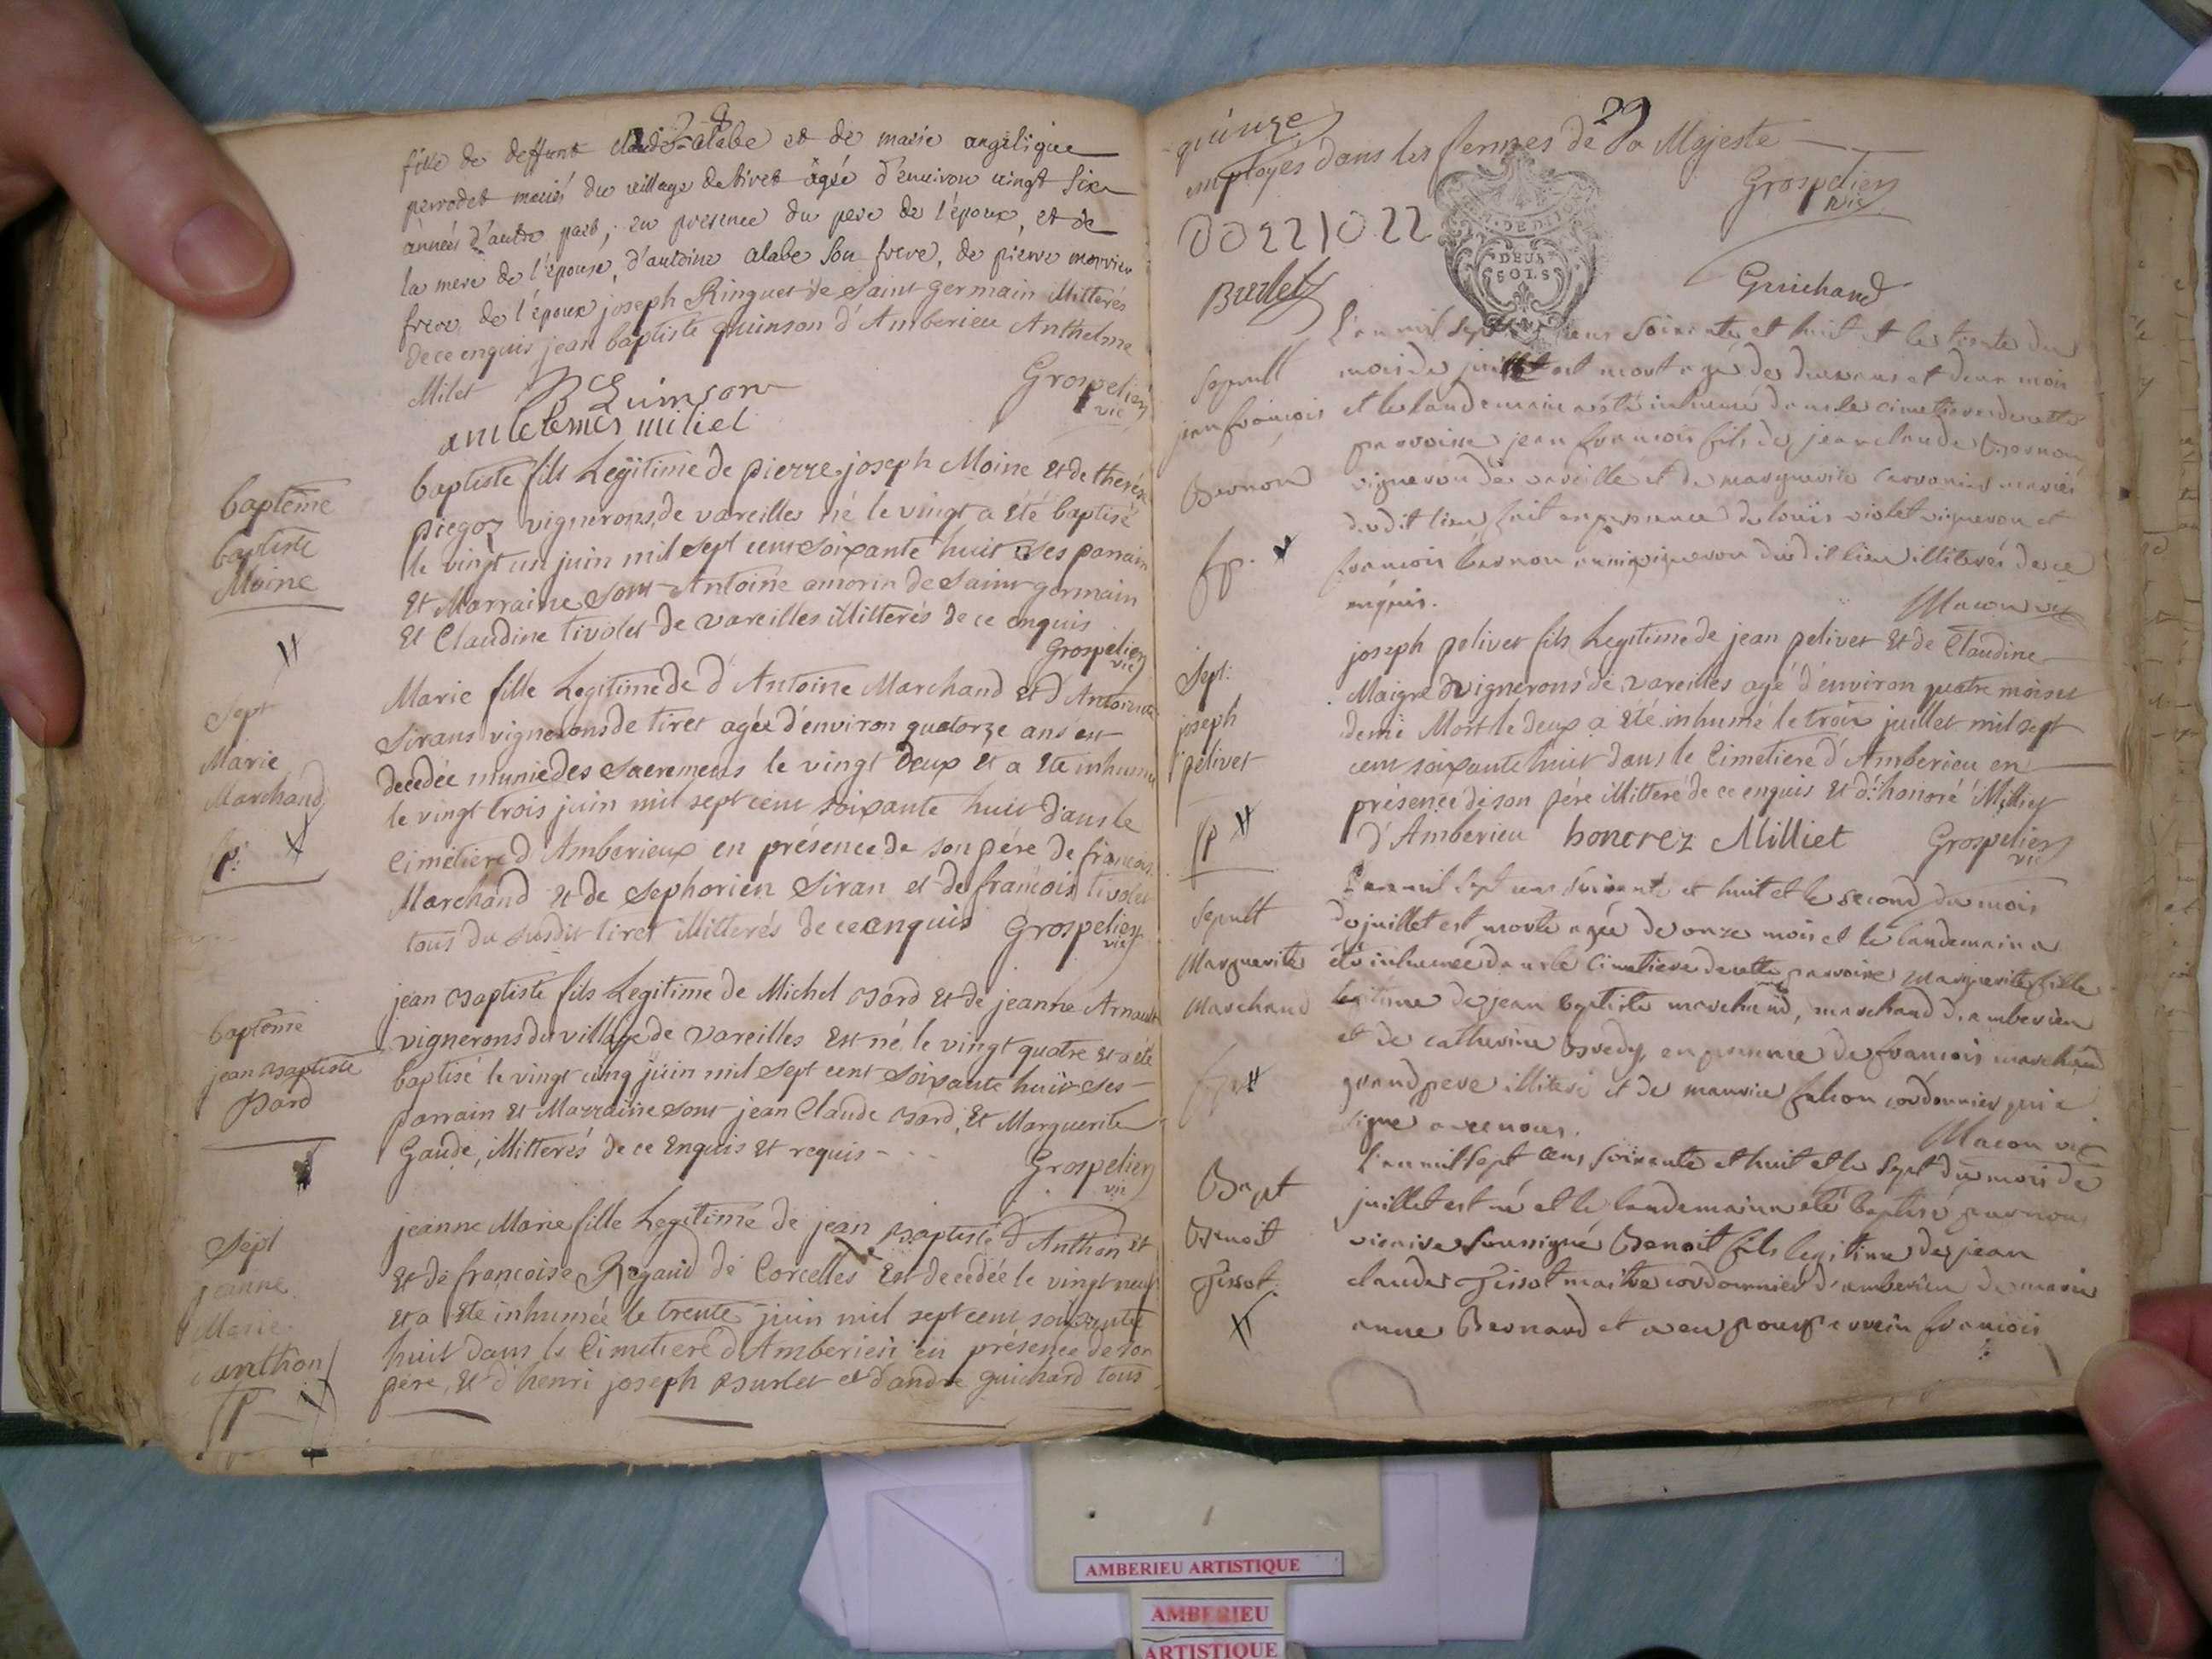 28
fille de deffunt claude alabe et de marie angelique
perrodet mariés du village de tiret âgée d'environ vingt six
années d'autre part, en presence du pere de l'époux, et de
la mere de l'épouse, d'antoine alabe son frere, de pierre
frere de l'époux joseph Ringuet de Saint germain illitterés
de ce enquis jean baptiste quinson d'Amberieu Anthelme
Milet
Quinson
Grospelier
vic
anthelemes miliet
baptême
baptiste
Moine
baptiste fils Legitime de pierre joseph Moine et de therese
piegoz vignerons de vareilles né le vingt a été baptisé
le vingt un juin mil sept cent soixante huit ses parrain
et Marraine sont Antoine amorin de Saint germain
et Claudine tivolet de vareilles illitterés de ce enquis
Grospelier
vic
Sept
Marie
Marchand
p.
Marie fille Legitime de d'Antoine Marchand et d'Antoinette
Sirans vignerons de tiret agée d'environ quatorze ans est
decedée munie des Sacremens le vingt deux et a été inhumée
le vingt trois juin mil sept cent soixante huit dans le
Cimetiere d'Amberieux en présence de son pére de francois
Marchand et de Sephorien Siran et de francois tivolet
tous du susdit tiret illitterés de ce enquis Grospelier
vic
baptême
jean Baptiste
Bard
jean Baptiste fils Legitime de Michel Bard et de jeanne Arnault
vignerons du village de vareilles est né le vingt quatre et a été
baptisé le vingt cinq juin mil sept cent soixante huit ses
parrain et Marraine sont jean Claude Bard, et Marguerite
Gaude, illitterés de ce enquis et requis
Grospelier
vic
Sept
jeanne
Marie
anthon
p
jeanne Marie fille Legitime de jean Baptiste d'Anthon et
et de francoise Regaud de Corcelles est decedée le vingt neuf
et a été inhumée le trente juin mil sept cent soixante
huit dans le Cimetiere d'Amberieu en présence de son
pére, et d'henri joseph Burlet et d'andré guichard tous
29
employés dans les fermes de Sa Majeste
Grospelier
vic
00221022
DEUX
SOLS
Burlet
Guichand
Sepult
jean françois
Bernon
fp.
L'an mil sept cens soixante et huit et le trente du
mois de juillet est mort agé de deux ans et deux mois
et le landemain a été inhumé dans le cimetiere de cette
parroisse jean francois fils de jean claude Bernon
vigneron de vareille et de marguerite mariés
dudit lieu fait en presence de louis violet vigneron et
francois bernon aussi vigneron dudit lieu illiterés de ce
enquis.
Macon vic
Sept:
joseph
pelivet
fp
joseph pelivet fils Legitime de jean pelivet et de Claudine
Maigre vignerons de vareilles agé d'environ quatre mois et
demi Mort le deux a été inhumé le trois juillet mil sept
cent soixante huit dans le Cimetiere d'Amberieu en
présence de son pére illitteré de ce enquis et d'honoré Milliet
d'Amberieu honorez Milliet Grospelier
vic
Sepult
Marguerite
Marchand
fp
L'an mil sept cens soixante et huit et le second du mois
de juillet est morte agée de onze mois et le landemain a
été inhumée dans le Cimetiere de cette parroisse Marguerite fille
legitime de jean baptiste marchand, marchand d'amberieu
et de catherine Bredy, en presence de francois marchand
grand pere illiteré et de maurice falcon cordonnier qui a
signé avec nous.
Macon vic
Bapt
Benoit
Tissot.
L'an mil sept cens soixante et huit et le sept du mois de
juillet est né et le landemain a été baptisé par nous
vicaire soussigné Benoit fils legitime de jean
claude Tissot maitre cordonnier d'amberieu de marie
anne Bernard et a eu pour parrein francois
AMBERIEU ARTISTIQUE
AMBERIEU
ARTISTIQUE